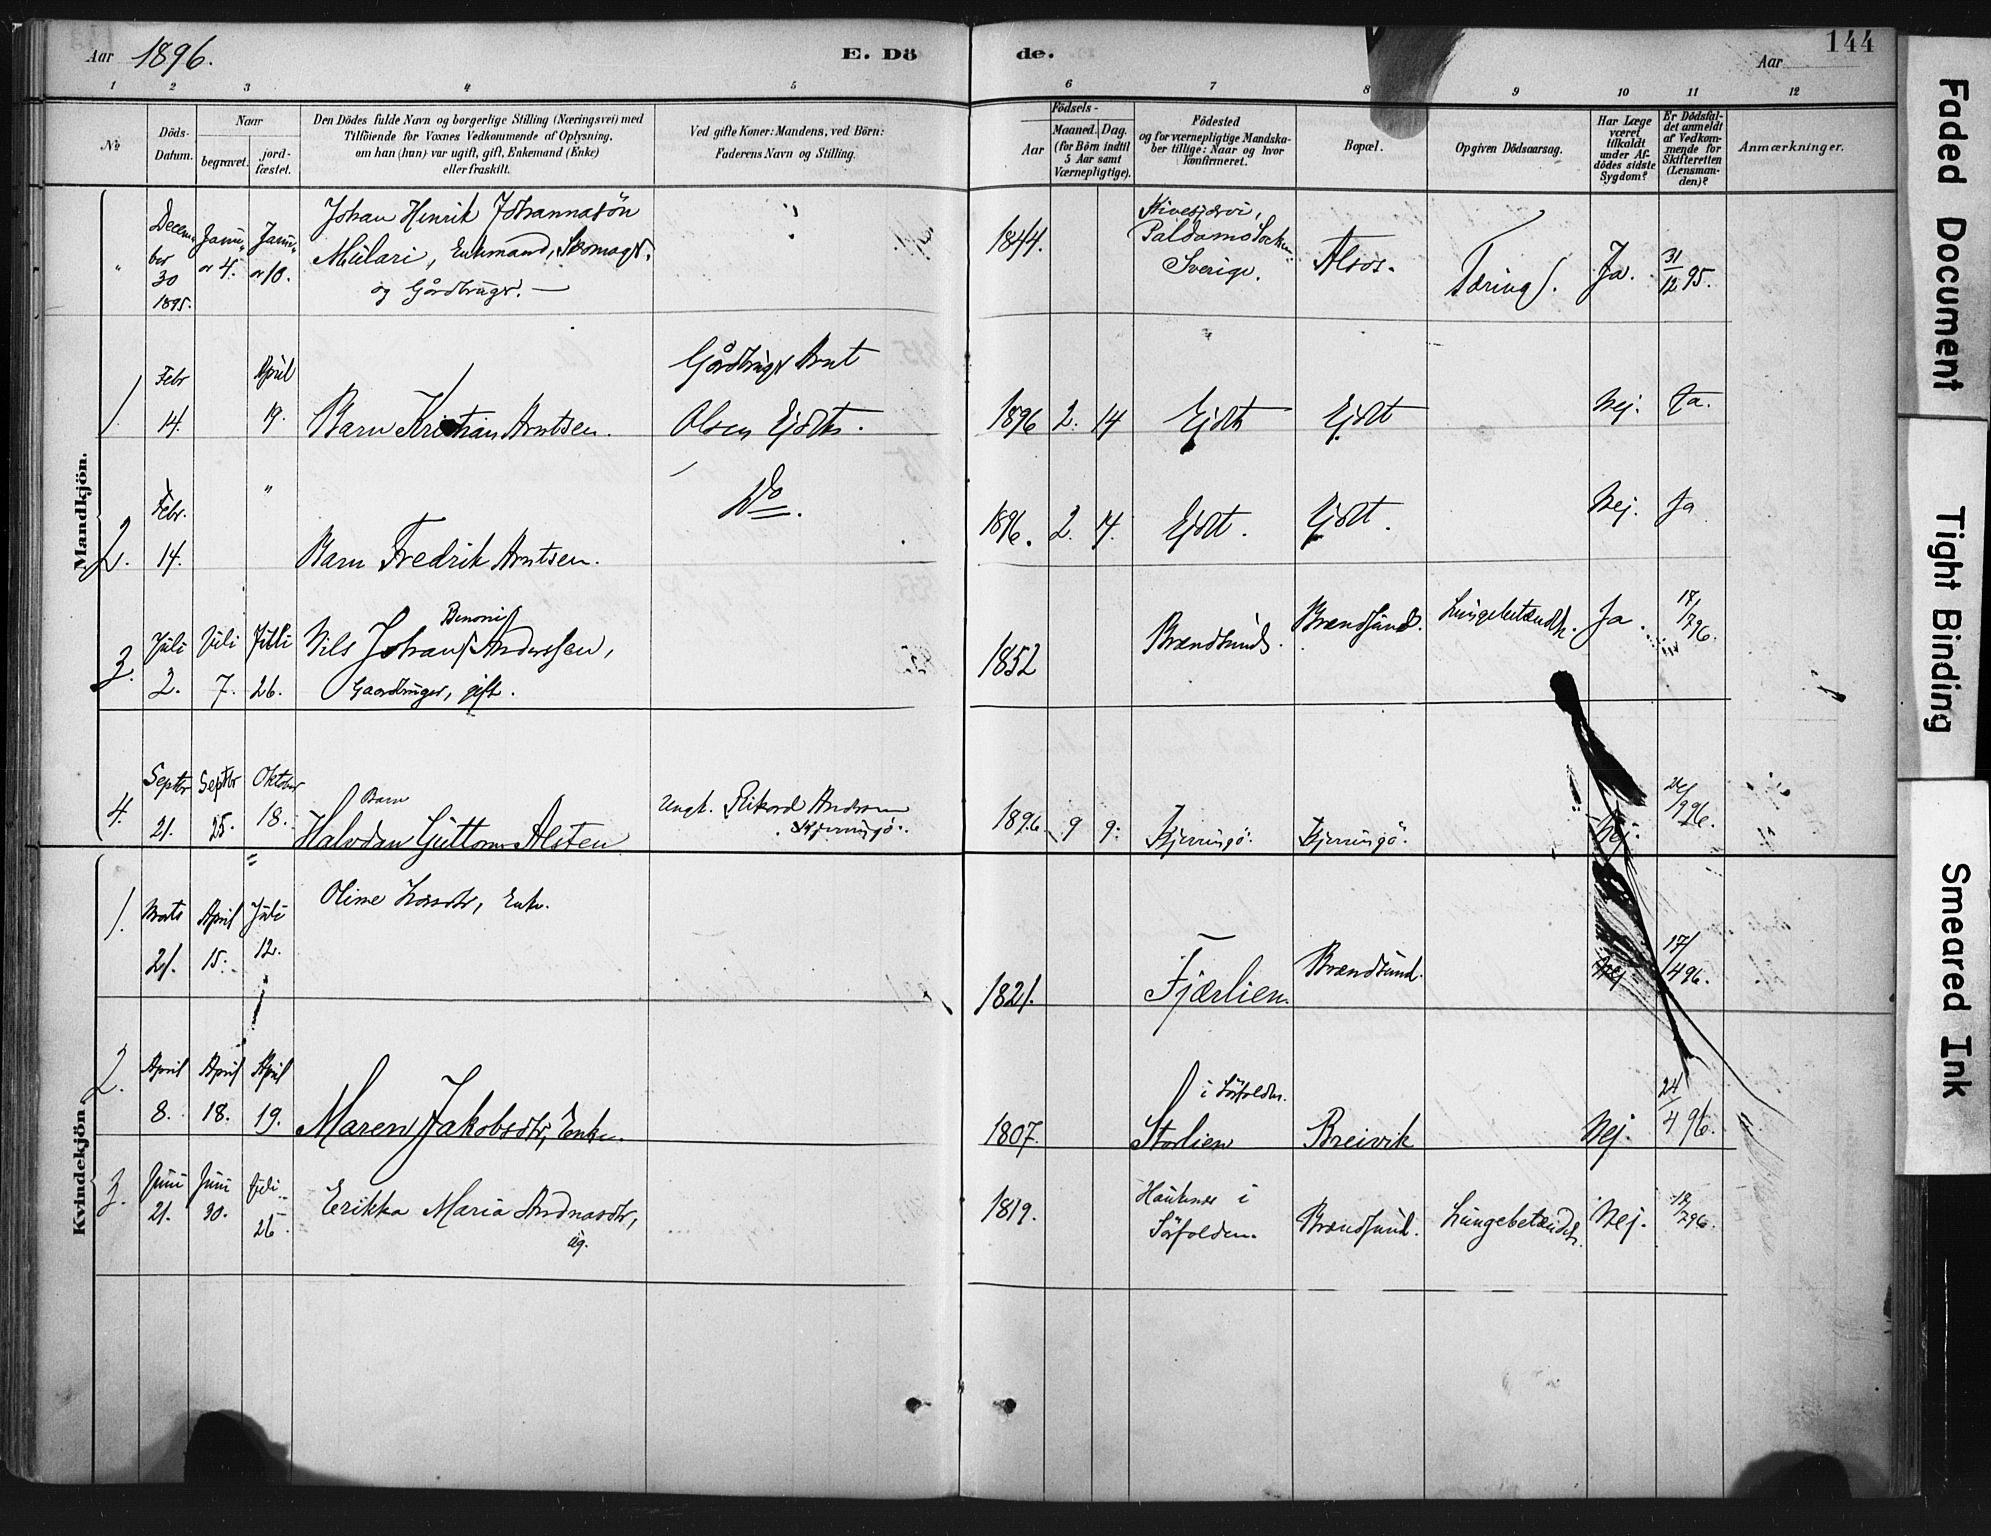 Aar 1896.
E. Dö
de.
Aar
144
1 2 3 4 5 6 7 8 9 10 11 12
№
Döds-
Datum.
Naar
begravet.
jord-
fæstet.
Den Dödes fulde Navn og borgerlige Stilling (Næringsvei) med
Tilföiende for Voxnes Vedkommende af Oplysning,
om han (hun) var ugift, gift, Enkemand (Enke)
eller fraskilt.
Ved gifte Koner: Mandens, ved Börn:
Faderens Navn og Stilling.
Födsels-
Aar
Maaned. Dag.
(for Børn indtil
5 Aar samt
Værnepligtige).
Födested
og for værnepligtige Mandska-
ber tillige: Naar og hvor
konfirmeret.
Bopæl.
Opgiven Dödsaarsag.
Har Læge
været
tilkaldt
under Af-
dödes sidste
Sygdom?
Er Dödsfal-
det anmeldt
af Vedkom-
mende for
Skifteretten
(Lensman-
den)?
Anmærkninger.
Mandkjön.
" Decem-
ber
30
1895.
Janu-
ar 4.
Janu-
ar 10.
Johan Henrik Johannasön
Mülari, Enkemand, Skomagr.
og Gårdbruger. —
1844.
Paldamo Sockn
Sverige.
Alsos.
Tæring.
Ja.
31/12 95.
1. Febr
14.
April
19.
Barn Kristian Arntsen.
Gårdbrugr Arnt
Olsen Ejdth.
1896 2. 14 Ejdth Ejdt Nej. Ja.
2. Febr.
14.
"
Barn Fredrik Arntsen.
Do.
1896. 2. 14. Ejdt. Ejdt. Nej. Ja
3. Juli
2.
Juli
7.
Juli
26.
Benoni
Nils Johan Anderssen,
Gaardbruger, gift.
1852 Brændsund. Brændsund. Lungebetændels. Ja. 17/7 96.
4. Septbr
21.
Septbr
25.
Oktober
18.
Barn
Halvdan Guttorm Alsten
ungk. Rikard Andersen
Kjerringö.
1896 9 9. Kjerringö. Kjerringö. Nej. 24/9 96.
Kvindekjön.
1. Marts
21.
April
15.
Juli
12.
Oline Larsdtr, Enke.
1821. Fjærlien. Brændsund. Nej 17/4 96.
2. April
8.
April
18.
April
19.
Maren Jakobsdtr, Enke.
1807. i Sörfolden.
Storlien Breivik Nej. 24/4 96.
3. Juni
21.
Juni
30.
Juli
26
Erikka Maria Andreasdtr,
ug.
1819. Hauknes i
Sörfolden. Brændsund. Lungebetændels. Nej. 17/7 96.
Faded Document
Tight Binding
Smeared Ink